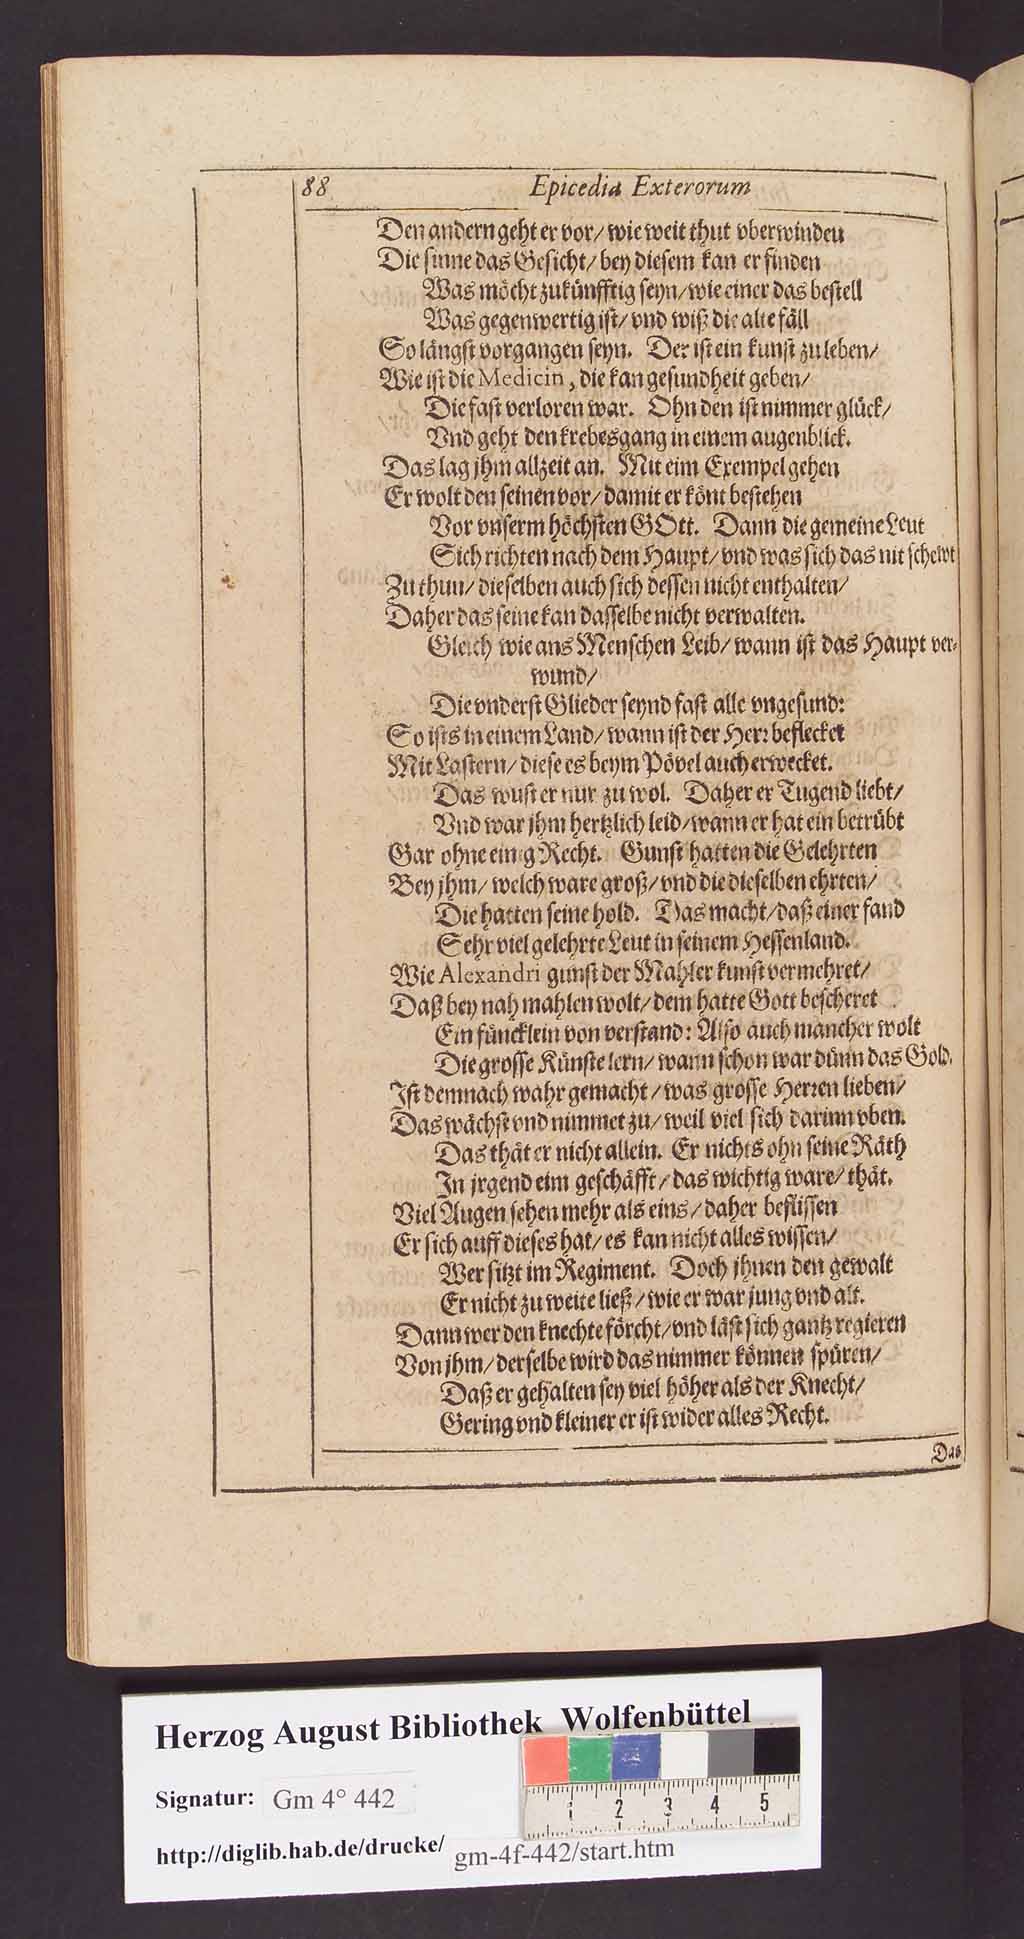 88 Epicedia Exterorum
Den andern geht er vor/ wie weit thut vberwinden
Die sinne das Gesicht/ bey diesem kan er finden
Was möcht zukünfftig seyn/ wie einer das bestell
Was gegenwertig ist/ vnd wiß die alte fäll
So längst vorgangen seyn. Der ist ein kunst zu leben/
Wie ist die Medicin, die kan gesundheit geben/
Die fast verloren war. Ohn den ist nimmer glück/
Vnd geht den krebesgang in einem augenblick.
Das lag jhm allzeit an. Mit eim Exempel gehen
Er wolt den seinen vor/ damit er könt bestehen
Vor vnserm höchsten GOtt. Dann die gemeine Leut
Sich richten nach dem Haupt/ vnd was sich das nit schewt
Zu thun/ dieselben auch sich dessen nicht enthalten/
Daher das seine kan dasselbe nicht verwalten.
Gleich wie ans Menschen Leib/ wann ist das Haupt ver-
wund/
Die vnderst Glieder seynd fast alle vngesund:
So ists in einem Land/ wann ist der Herr beflecket
Mit Lastern/ diese es beym Pövel auch erwecket.
Das wust er nur zu wol. Daher er Tugend liebt/
Vnd war jhm hertzlich leid/ wann er hat ein betrübt
Gar ohne einig Recht. Gunst hatten die Gelehrten
Bey jhm/ welch ware groß/ vnd die dieselben ehrten/
Die hatten seine hold. Das macht/ daß einer fand
Sehr viel gelehrte Leut in seinem Hessenland.
Wie Alexandri gunst der Mahler kunst vermehret/
Daß bey nah mahlen wolt/ dem hatte Gott bescheret
Ein füncklein von verstand: Also auch mancher wolt
Die grosse Künste lern/ wann schon war dünn das Gold.
Ist demnach wahr gemacht/ was grosse Herren lieben/
Das wächst vnd nimmet zu/ weil viel sich darinn vben.
Das thät er nicht allein. Er nichts ohn seine Räth
In jrgend eim geschäfft/ das wichtig ware/ thät.
Viel Augen sehen mehr als eins/ daher beflissen
Er sich auff dieses hat/ es kan nicht alles wissen/
Wer sitzt im Regiment. Doch jhnen den gewalt
Er nicht zu weite ließ/ wie er war jung vnd alt.
Dann wer den knechte förcht/ vnd läst sich gantz regieren
Von jhm/ derselbe wird das nimmer können spüren/
Daß er gehalten sey viel höher als der Knecht/
Gering vnd kleiner er ist wider alles Recht.
Das
Herzog August Bibliothek Wolfenbüttel
Signatur: Gm 4° 442
http://diglib.hab.de/drucke/ gm-4f-442/start.htm
1 2 3 4 5